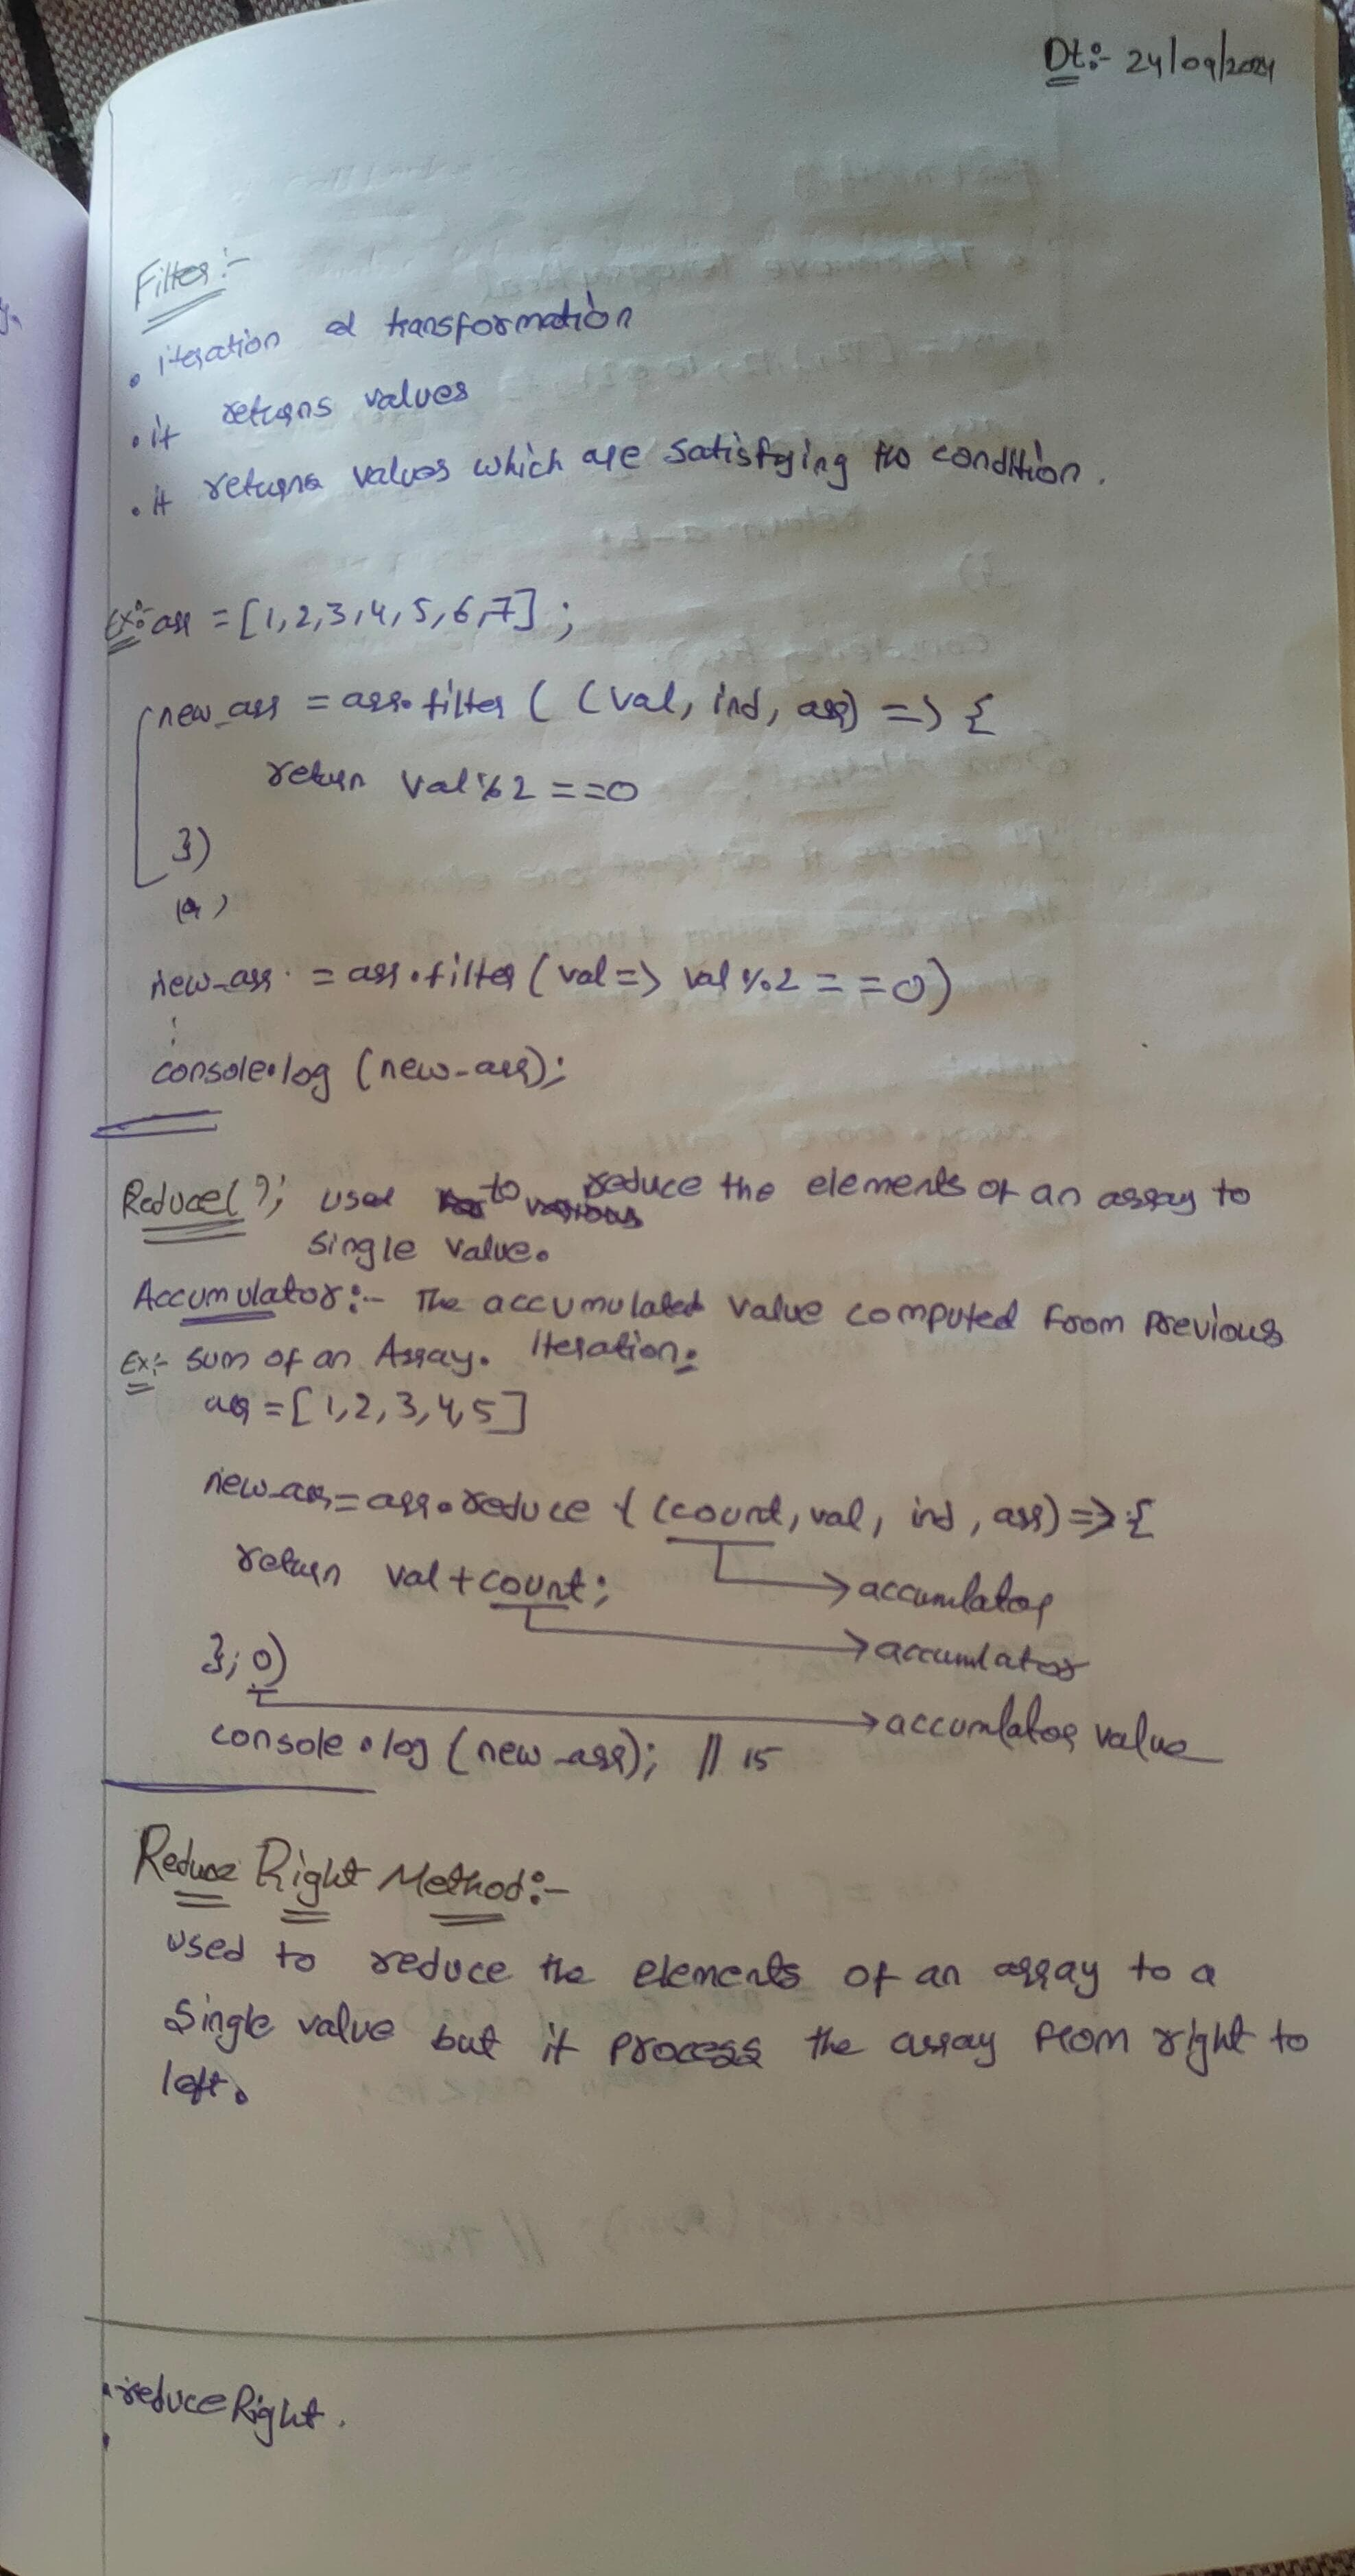 Dt:- 24/09/2024
Filter:-
• iteration & transformation
• it returns values
• it returns values which are satisfying the condition.
Ex:- arr = [1,2,3,4,5,6,7];
new_arr = arr.filter ( (val, ind, arr) => {
return val%2 ==0
})
(or)
new_arr = arr.filter (val => val %2 ==0)
console.log (new_arr);
Reduce( ); used to reduce the elements of an array to
single value.
Accumulator:- The accumulated value computed from previous
iteration.
Ex:- sum of an Array.
arr = [1,2,3,4,5]
new_arr = arr.reduce ( (count, val, ind, arr) => {
return val + count;
accumlator
accumlator
}, 0)
accumlator value
console.log (new_arr); // 15
Reduce Right Method:-
used to reduce the elements of an array to a
single value but it process the array from right to
left.
• reduceRight.